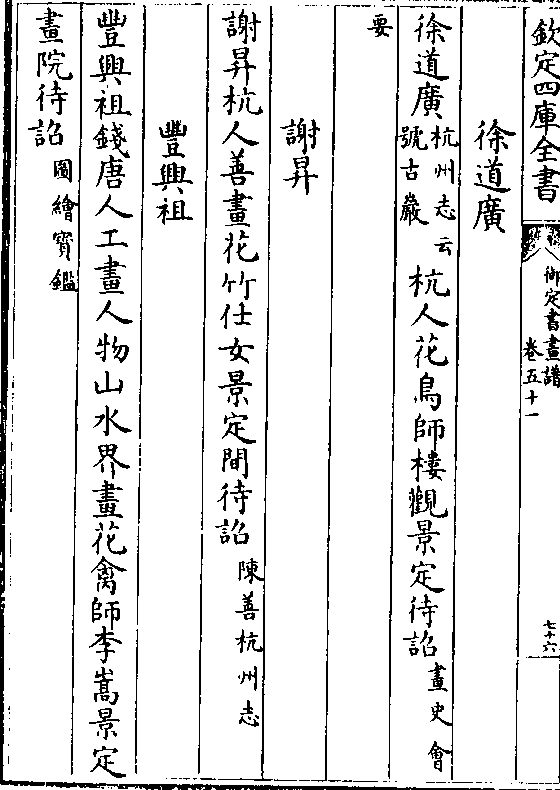 欽定四庫全書
御定書畫譜
卷五十一
七十六
徐道廣
徐道廣杭州志云號古巖杭人花鳥師樓觀景定待詔畫史會
要
謝昇
謝昇杭人善畫花竹仕女景定間待詔陳善杭州志
豐興祖
豐興祖錢唐人工畫人物山水界畫花禽師李嵩景定
畫院待詔圖繪寳鑑